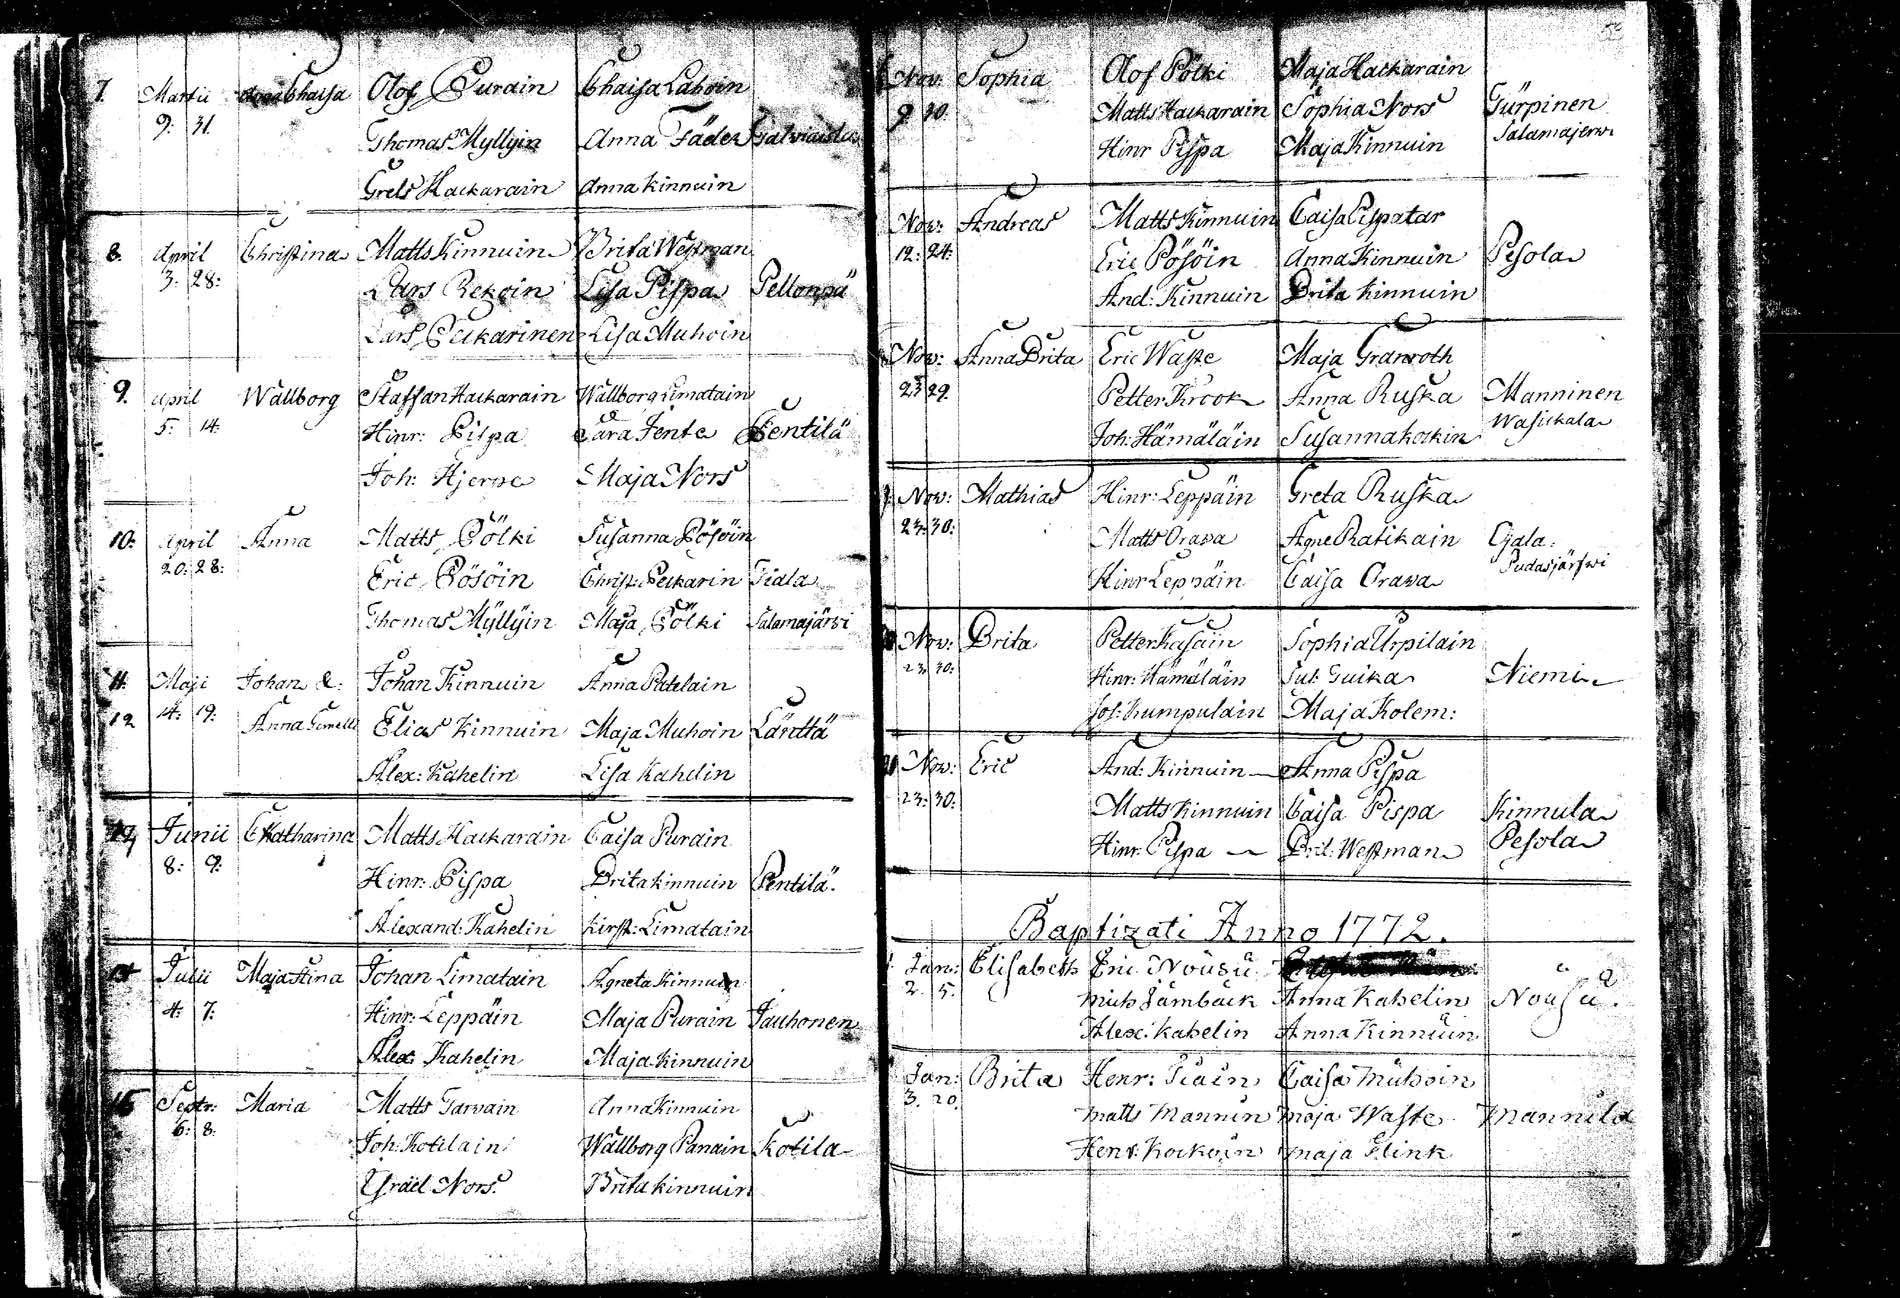 7. Martii Anna Chaisa Olof Purain Chaisa Laboin
9: 31. Thomas Myllyin Anna Fäder
Grels Hackarain Anna Kinnuin
8. April Christina Matts Kinnuin Brita Westman
3: 28: Lars Rekoin Lisa Pispa Pellonpä
Lars Peckarinen Lisa Muhoin
9. April Wallborg Staffan Hackarain Wallborg Limatain
5: 14: Hinr: Pispa Sara Jente Pentilä
Joh: Hjerpe Maja Nors
10: April Anna Matts Pölki Susanna Pösöin
20: 28: Eric Pösöin Christ: Peckarin Tiala
Thomas Myllyin Maja Pölki Salamajärwi
11. Maji Johan &: Johan Kinnuin Anna Patelain
12 14: 19: Anna Gemelli Elias Kinnuin Maja Muhoin Länttä
Alex: Kahelin Lisa Kahelin
13 Junii Catharina Matts Hackarain Caisa Purain
8: 9: Hinr: Pispa Brita Kinnuin Pentilä.
Alexand: Kahelin Kirst: Limatain
14 Julii Maja Stina Johan Limatain Agneta Kinnuin
4: 7: Hinr: Leppäin Maja Purain Jauhonen
Alex: Kahelin Maja Kinnuin
15 Septr: Maria Matts Tarvain Anna Kinnuin
6: 8: Joh: Kotilain Wallborg Panain Kotila
Ysrael Nors. Brita Kinnuin
Nov: Sophia Olof Pölki Maja Hackarain
9 10. Matts Hackarain Sophia Nors Türpinen
Hinr Pispa Maja Kinnuin Salamajerwi
Nov: Andreas Matts Kinnuin Caisa Pispatar
12: 24: Eric Pösöin Anna Kinnuin Pesola
And: Kinnuin Brita Kinnuin
Nov: Anna Brita Eric Waste Maja Granroth
23 29. Petter Krook Anna Ruska Manninen
Joh: Hämäläin Susanna Kockin Wasickala
Nov: Mathias Hinr: Leppäin Greta Ruska
23: 30: Matts Orava Agne Ratikain Ojala:
Hinr Leppäin Caisa Orava Pudasjärfwi
Nov: Brita Petter Kasain Sophia Urpilain
23 30: Hinr: Hämäläin Jul: Guika Niemi
Jos: Kumpulain Maja Kolem:
Nov: Eric And: Kinnuin Anna Pispa
23: 30: Matts Kinnuin Caisa Pispa Kinnula
Hinr: Pispa Brit: Westman Pesola
Baptizati Anno 1772.
Jan: Elisabeth Eric Nousu
2. 5. Mich Jämback Anna Kahelin Nousu.
Alex: Kahelin Anna Kinnuin
Jan: Brita Henr: Piain Caisa Muhoin
3. 20. Matts Mannin Maja Waste Mannila
Henr: Kockoin Maja Flink